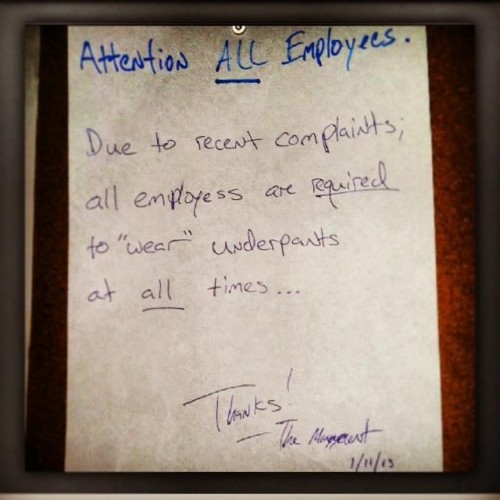 Attention ALL Employees.
Due to recent complaints;
all employess are required
to "wear" underpants
at all times...
Thanks!
– The Management
1/11/13